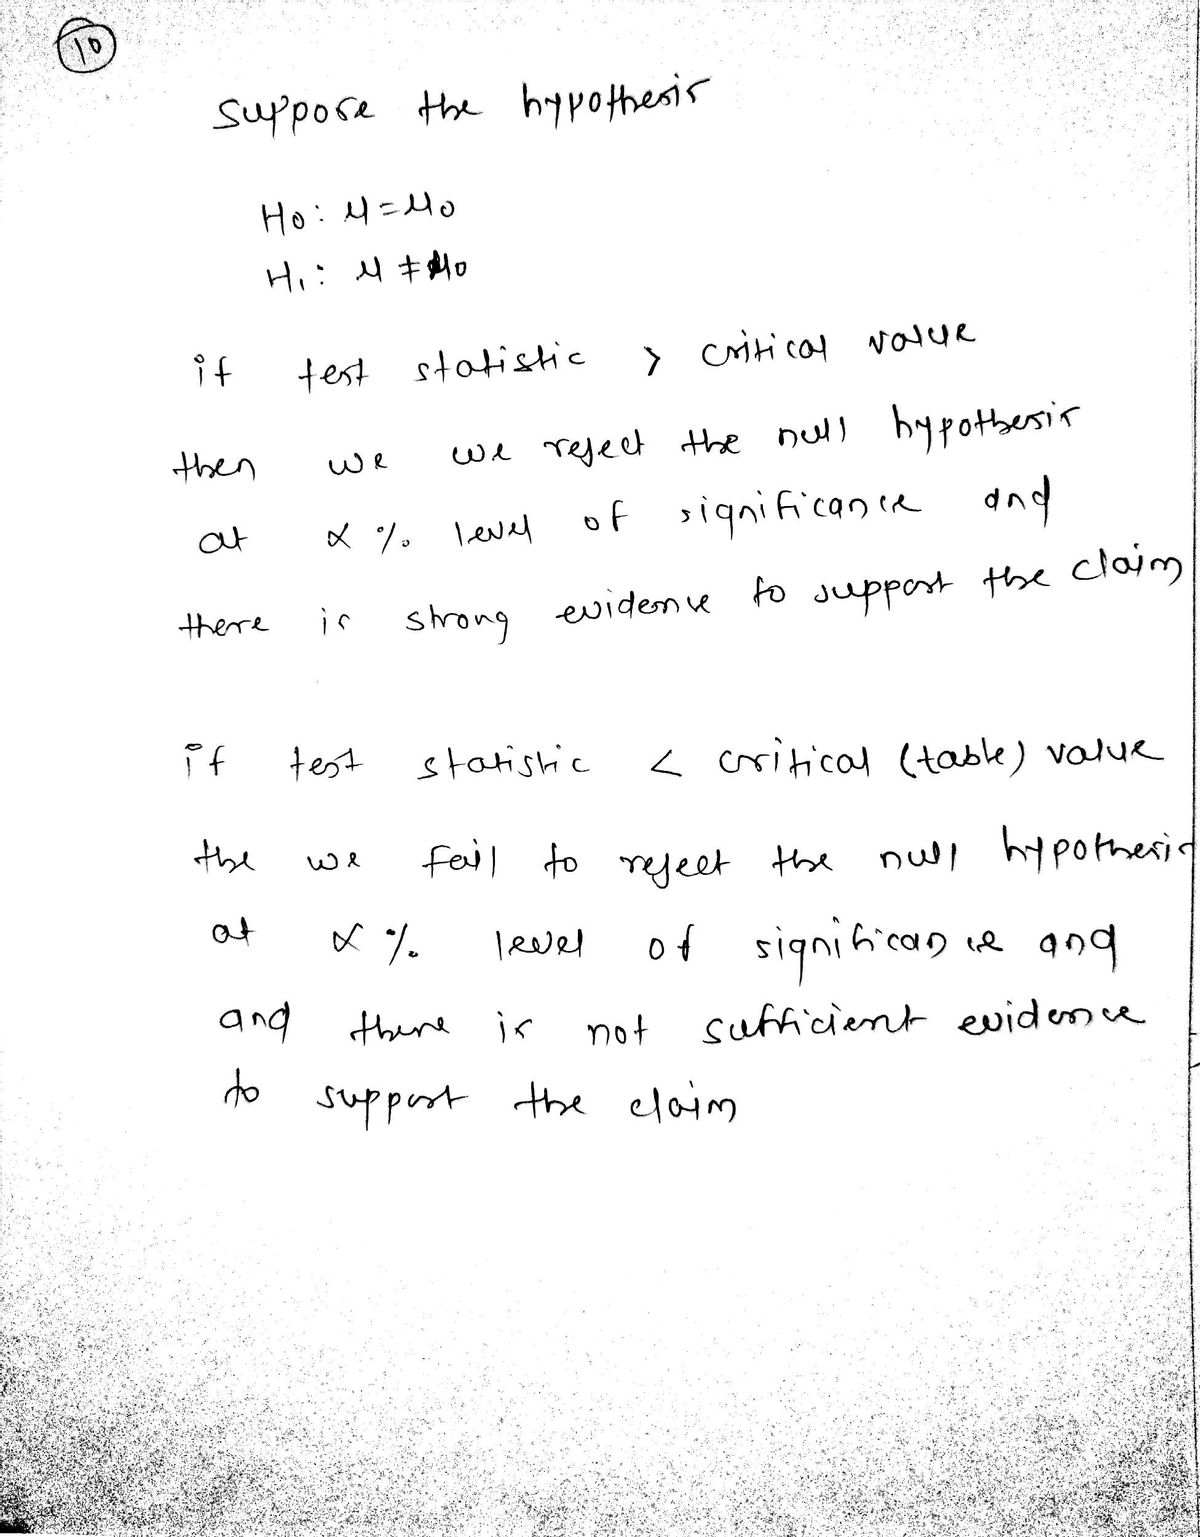 10
suppose the hypothesis
H0: μ=μ0
H1: μ≠μ0
if test statistic > critical value
then we we reject the null hypothesis
at α % level of significance and
there is strong evidence to support the claim
if test statistic < critical (table) value
the we fail to reject the null hypothesis
at α % level of significance and
and there is not sufficient evidence
to support the claim